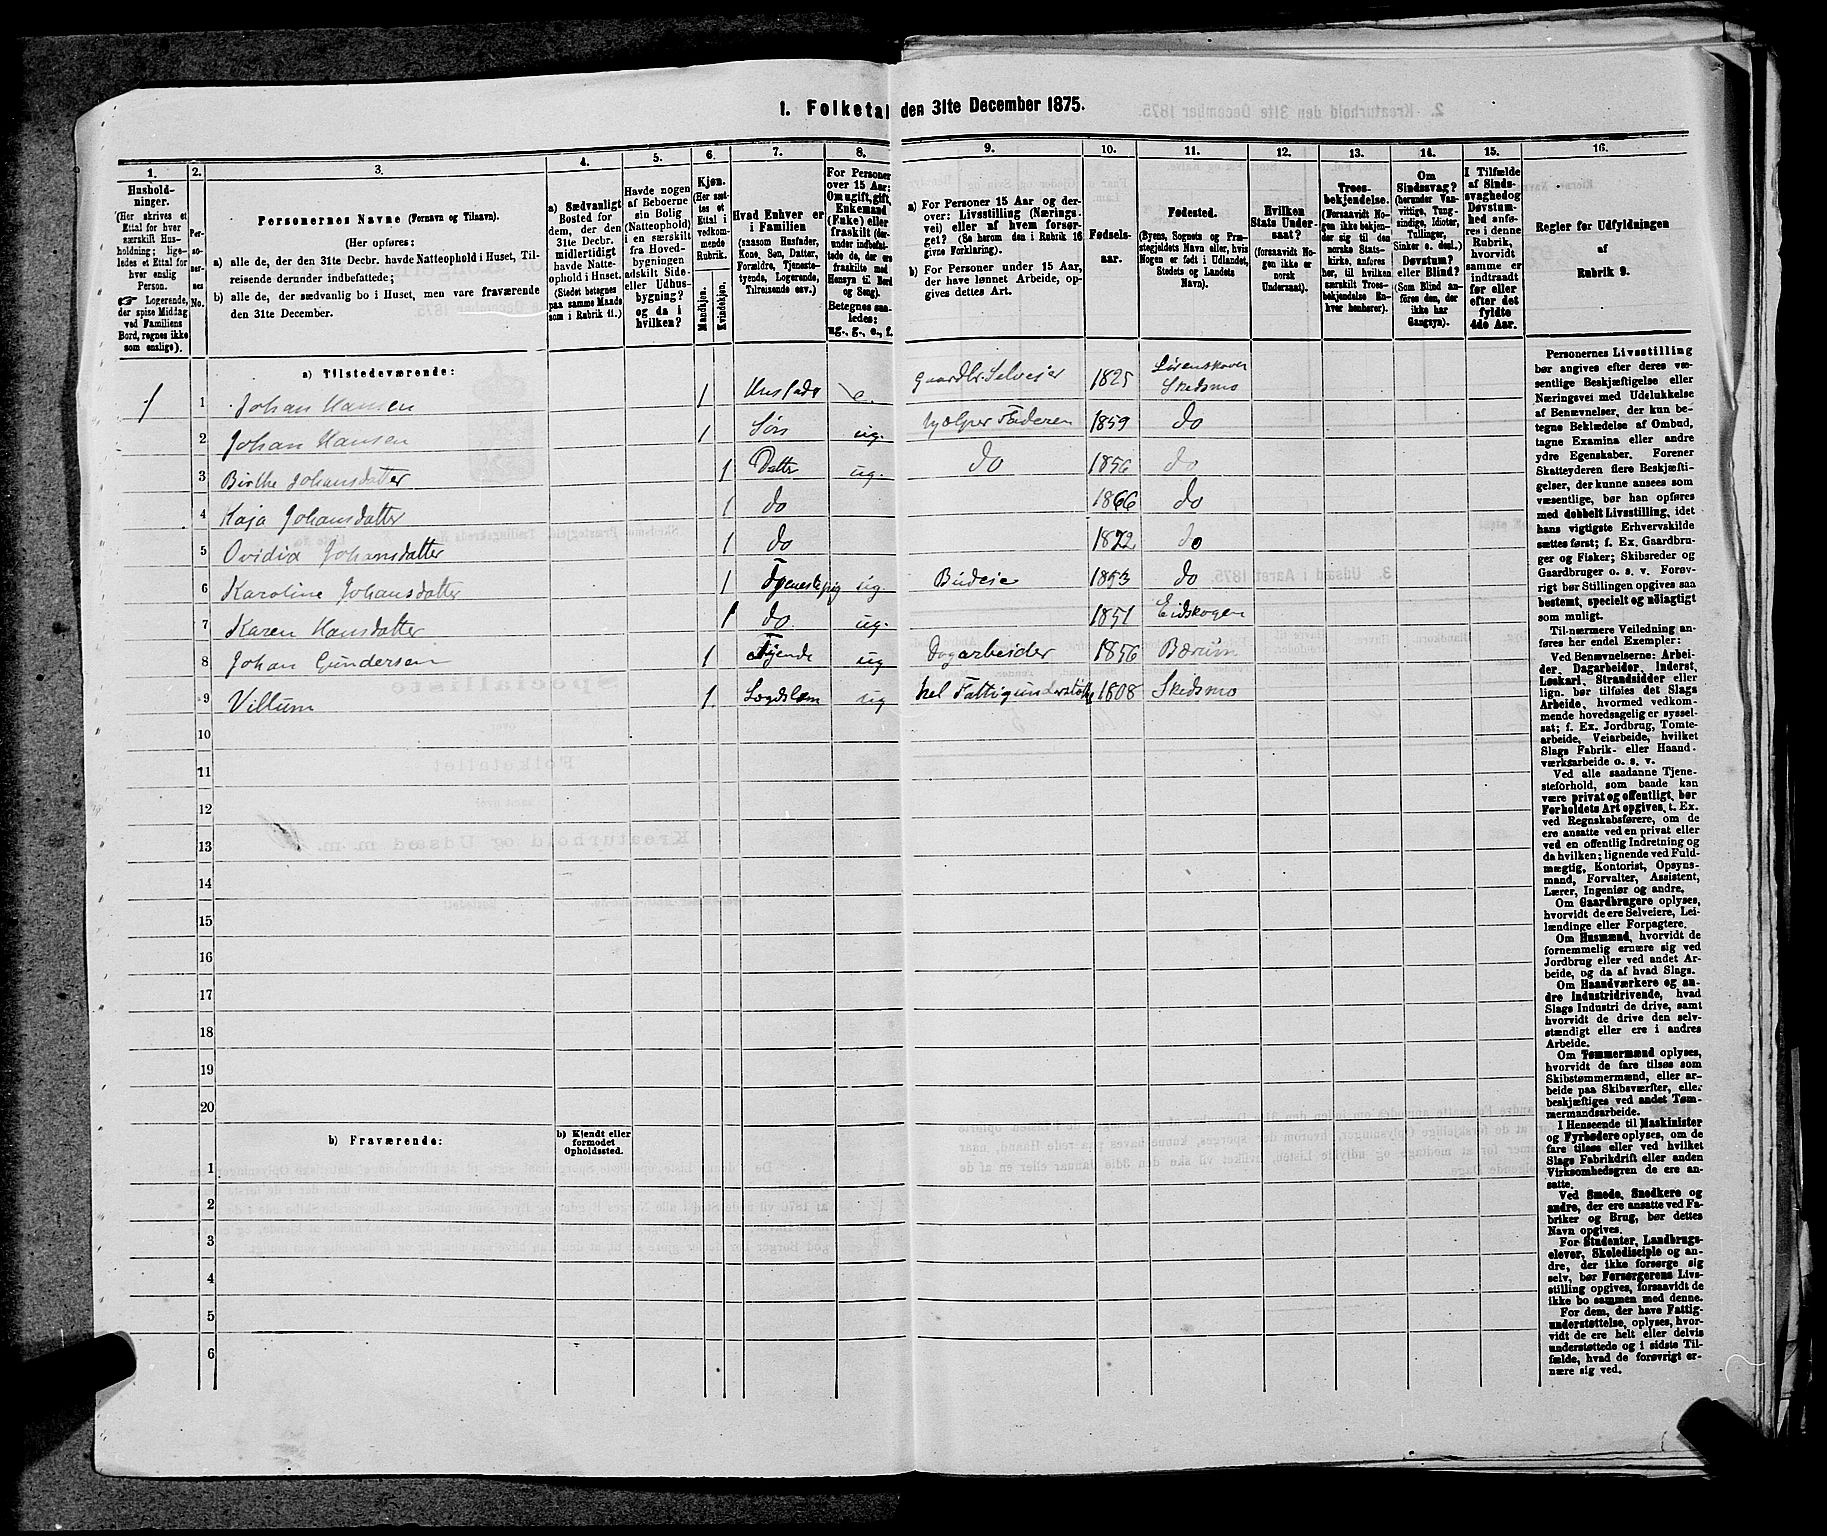 1. Folketal den 31te December 1875.
1. 2. 3. 4. 5. 6. 7. 8. 9. 10. 11. 12. 13. 14. 15. 16.
Hushold-
ninger.
(Her skrives et
Ettal for hver
særskilt Hus-
holdning; lige-
ledes et Ettal for
hver enslig
Person.
☞ Logerende,
der spise Middag
ved Familiens
Bord, regnes ikke
som enslige).
Per-
so-
ner-
nes
No.
Personernes Navne (Fornavn og Tilnavn).
(Her opføres:
a) alle de, der den 31te Decbr. havde Natteophold i Huset, Til-
reisende derunder indbefattede;
b) alle de, der sædvanlig bo i Huset, men vare fraværende
den 31te December.
a) Sædvanligt
Bosted for
dem, der den
31te Decbr.
midlertidigt
havde Natte-
ophold i Huset.
(Stedet betegnes
paa samme Maade
som i Rubrik 11.)
Havde nogen
af Beboerne
sin Bolig
(Natteophold)
i en særskilt
fra Hoved-
bygningen
adskilt Side-
eller Udhus-
bygning?
og da i
hvilken?
Kjøn.
(Her sæt-
tes et
Ettal i
vedkom-
mende
Rubrik.
Mandkjøn.
Kvindekjøn.
Hvad Enhver er
i Familien
(saasom Husfader,
Kone, Søn, Datter,
Forældre, Tjeneste-
tyende, Logerende,
Tilreisende osv.)
For Personer
over 15 Aar:
Om ugift, gift,
Enkemand
(Enke) eller
fraskilt (der-
under indbefat-
tede de, der ere
fraskilte med
Hensyn til Bord
og Seng).
Betegnes saa-
ledes:
ug., g., e., f.
a) For Personer 15 Aar og der-
over: Livsstilling (Nærings-
vei) eller af hvem forsør-
get? (Se herom den i Rubrik 16
givne Forklaring).
b) For Personer under 15 Aar,
der have lønnet Arbeide, op-
gives dettes Art.
Fødsels-
aar.
Fødested.
(Byens, Sognets og Præ-
stegjeldets Navn eller, hvis
Nogen er født i Udlandet,
Stedets og Landets
Navn).
Hvilken
Stats Under-
saat?
(forsaavidt No-
gen ikke er
norsk
Undersaat).
Troes-
bekjendelse.
(Forsaavidt No-
gen ikke bekjen-
der sig til den
norske Stats-
kirke, anføres
her, til hvilken
særskilt Troes-
bekjendelse En-
hver henhører).
Om
Sindssvag?
(herunder Van-
vittige, Tung-
sindige, Idioter,
Tullinger,
Sinker o. desl.)
Døvstum?
eller Blind?
(Som Blind an-
føres den, der
ikke har
Gangsyn).
I Tilfælde
af Sinds-
svaghed og
Døvstum-
hed anfø-
res i denne
Rubrik,
hvorvidt
samme er
indtraadt
før eller
efter det
fyldte
4de Aar.
Regler for Udfyldningen
af
Rubrik 9.
a) Tilstedeværende:
1 1 Johan Hansen 1 Husfader e. Gaardbr. Selveier 1825 Lørenskoven Skedsmo
2 Johan Hansen 1 Søn ug. hjelper Faderen 1859 do
3 Birthe Johansdatter 1 Datter ug. do 1856 do
4 Kaja Johansdatter 1 do 1866 do
5 Ovidia Johansdatter 1 do 1872 do
6 Karoline Johansdatter 1 Tjenestepig ug. Budeie 1853 do
7 Karen Hansdatter 1 do ug. 1851 Eidskogen
8 Johan Gundersen 1 Tjende ug Dagarbeider 1856 Bærum
9 Villum 1. Logdslem ug hel Fattigunderstøtt 1808 Skedsmo
10
11
12
13
14
15
16
17
18
19
20
b) Fraværende:
b) Kjendt eller
formodet
Opholdssted.
1
2
3
4
5
6
Personernes Livsstilling
bør angives efter deres væ-
sentlige Beskjæftigelse eller
Næringsvei med Udelukkelse
af Benævnelser, der kun be-
tegne Beklædelse af Ombud,
tagne Examina eller andre
ydre Egenskaber. Forener
Skatteyderen flere Beskjæfti-
gelser, der kunne ansees som
væsentlige, bør han opføres
med dobbelt Livsstilling, idet
hans vigtigste Erhvervskilde
sættes først; f. Ex. Gaardbru-
ger og Fisker; Skibsreder og
Gaardbruger o. s. v. Forøv-
rigt bør Stillingen opgives saa
bestemt, specielt og nöiagtigt
som muligt.
Til nærmere Veiledning an-
føres her endel Exempler:
Ved Benævnelserne: Arbei-
der, Dagarbeider, Inderst,
Løskarl, Strandsidder eller
lign. bør tilføies det Slags
Arbeide, hvormed vedkom-
mende hovedsagelig er syssel-
sat; f. Ex. Jordbrug, Tomte-
arbeide, Veiarbeide, hvilket
Slags Fabrik- eller Haand-
værksarbeide o. s. v.
Ved alle saadanne Tjene-
steforhold, som baade kan
være privat og offentligt, bør
Forholdets Art opgives, t. Ex.
ved Regnskabsførere, om de
ere ansatte ved en privat eller
ved en offentlig Indretning og
da hvilken; lignende ved Fuld-
mægtig, Kontorist, Opsyns-
mand, Forvalter, Assistent,
Lærer, Ingeniør og andre.
Om Gaardbrugere oplyses,
hvorvidt de ere Selveiere, Lei-
lændinge eller Forpagtere.
Om Husmænd, hvorvidt de
fornemmelig ernære sig ved
Jordbrug eller ved andet Ar-
beide, og da af hvad Slags.
Om Haandværkere og an-
dre Industridrivende, hvad
Slags Industri de drive, samt
hvorvidt de drive den selv-
stændigt eller ere i andres
Arbeide.
Om Tømmermænd oplyses,
hvorvidt de fare tilsøs som
Skibstømmermænd, eller ar-
beide paa Skibsværfter, eller
beskjæftiges ved andet Tøm-
mermandsarbeide.
I Henseende til Maskinister
og Fyrbødere oplyses, om de
fare tilsøs eller ved hvilket
Slags Fabrikdrift eller anden
Virksomhedsgren de ere an-
satte.
Ved Smede, Snedkere og
andre, der ere ansatte ved Fa-
briker og Brug, bør dettes
Navn opgives.
For Studenter, Landbrugs-
elever, Skoledisciple og an-
dre, der ikke forsørge sig
selv, bør Forsørgerens Livs-
stilling opgives, forsaavidt de
ikke bo sammen med denne.
For dem, der have Fattig-
understøttelse, oplyses, hvor-
vidt de ere helt eller delvis
understøttede og i sidste Til-
fælde, hvad de forøvrigt er-
nære sig ved.